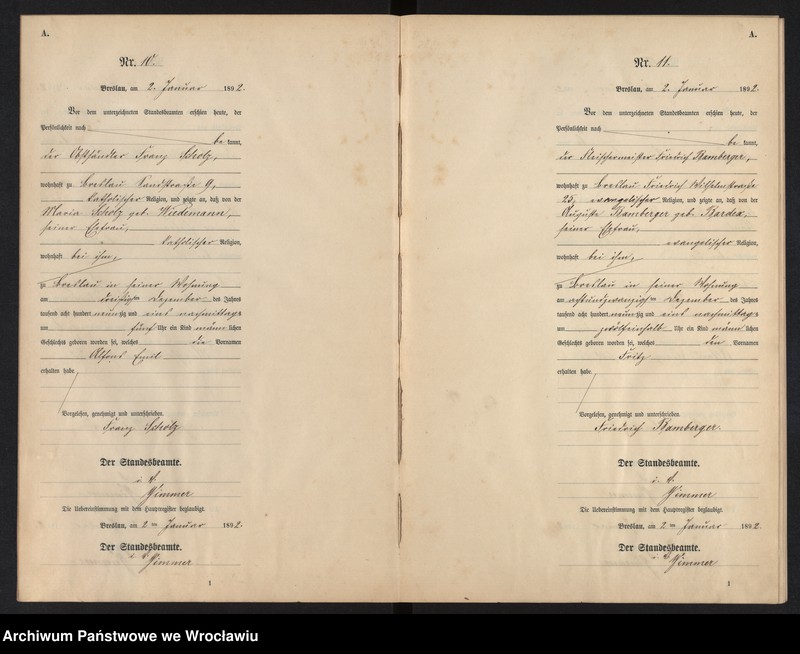 A.
Nr. 10.
Breslau, am 2. Januar 1892.
Vor dem unterzeichneten Standesbeamten erschien heute, der
Persönlichkeit nach
be kannt,
der Obsthändler Franz Scholz,
wohnhaft zu Breslau Sandstraße 9,
katholischer Religion, und zeigte an, daß von der
Maria Scholz geb. Wiedemann,
seiner Ehefrau,
katholischer Religion,
wohnhaft bei ihm,
zu Breslau in seiner Wohnung
am dreißigsten Dezember des Jahres
tausend acht hundert neunzig und eins nachmittags
um fünf Uhr ein Kind männlichen
Geschlechts geboren worden sei, welches die Vornamen
Alfons Emil
erhalten habe.
Vorgelesen, genehmigt und unterschrieben.
Franz Scholz
Der Standesbeamte.
Wimmer
Die Uebereinstimmung mit dem Hauptregister beglaubigt.
Breslau, am 2ten Januar 1892.
Der Standesbeamte.
Wimmer
1
A.
Nr. 11.
Breslau, am 2. Januar 1892.
Vor dem unterzeichneten Standesbeamten erschien heute, der
Persönlichkeit nach
be kannt,
der Fleischermeister Friedrich Bamberger,
wohnhaft zu Breslau Friedrich Wilhelmstraße
25, evangelischer Religion, und zeigte an, daß von der
Auguste Bamberger geb.
seiner Ehefrau,
evangelischer Religion,
wohnhaft bei ihm,
zu Breslau in seiner Wohnung
am achtundzwanzigsten Dezember des Jahres
tausend acht hundert neunzig und eins nachmittags
um zwölfeinhalb Uhr ein Kind männlichen
Geschlechts geboren worden sei, welches den Vornamen
Fritz
erhalten habe.
Vorgelesen, genehmigt und unterschrieben.
Friedrich Bamberger.
Der Standesbeamte.
Wimmer
Die Uebereinstimmung mit dem Hauptregister beglaubigt.
Breslau, am 2ten Januar 1892.
Der Standesbeamte.
Wimmer
1
Archiwum Państwowe we Wrocławiu